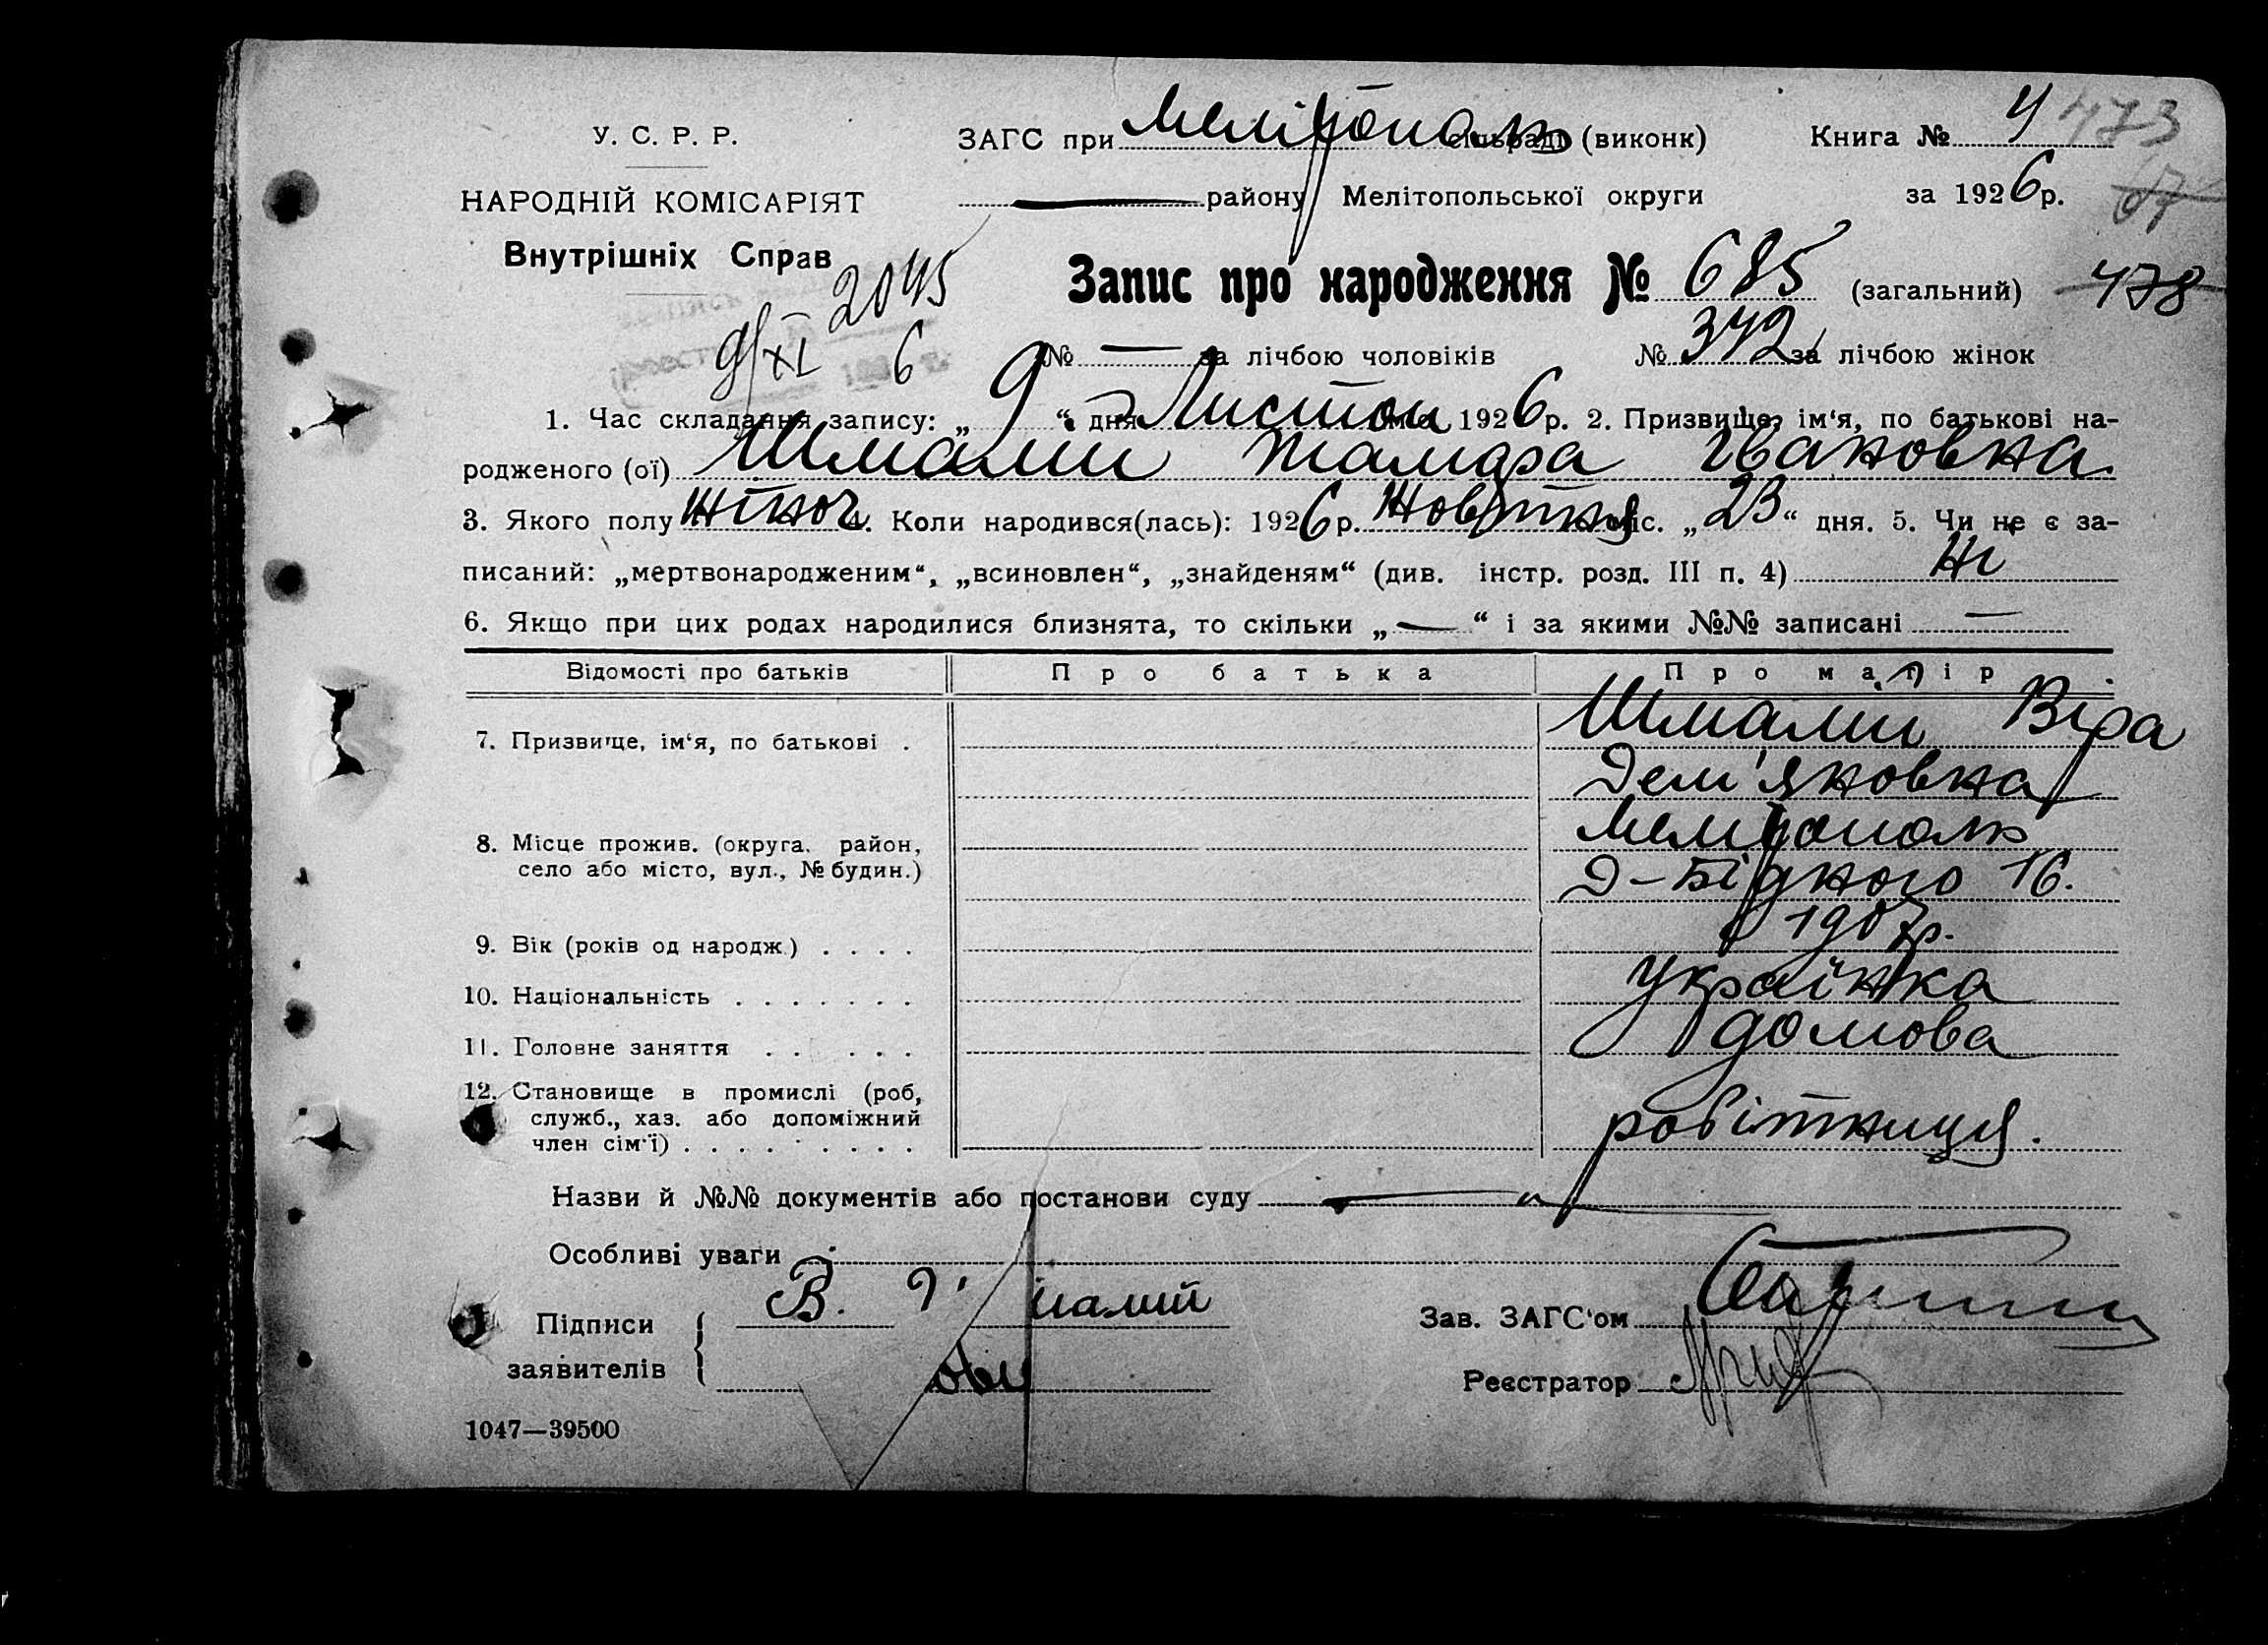 У. С. Р. Р.
НАРОДНІЙ КОМІСАРІЯТ
Внутрішніх Справ
2045
9/XI 6
ЗАГС при Мелітополь сільраді (виконк)
району Мелітопольської округи
Книга № 4 473
за 1926 р. 67
Запис про народження № 685 (загальний) 478
№ — за лічбою чоловіків № 342 за лічбою жінок
1. Час складання запису: „ 9 “ дня Листоп м-ця 1926 р. 2. Призвище, ім‘я, по батькові на-
родженого (ої) Шмалий Тамара Івановна
3. Якого полу жіноч 4. Коли народився(лась): 1926 р. Жовтня міс. „ 23 “ дня. 5. Чи не є за-
писаний: „мертвонародженим“, „всиновлен“, „знайденям“ (див. інстр. розд. III п. 4) Ні
6. Якщо при цих родах народилися близнята, то скільки „ — “ і за якими №№ записані —
Відомості про батьків Про батька Про матір
7. Призвище, ім‘я, по батькові . Шмалий Віра
Дем'яновна
8. Місце прожив. (округа, район, Мелітополь
село або місто, вул., № будин.) Д-Бідного 16.
9. Вік (років од народж.) . . . . 1907 р.
10. Національність . . . . . . . українка
11. Головне заняття . . . . . домова
12. Становище в промислі (роб,
служб., хаз. або допоміжний
член сім‘ї) . . . . . . . . робітниця.
Назви й №№ документів або постанови суду —
Особливі уваги
Підписи
заявителів
В. малий
Зав. ЗАГС‘ом
Реєстратор
1047—39500